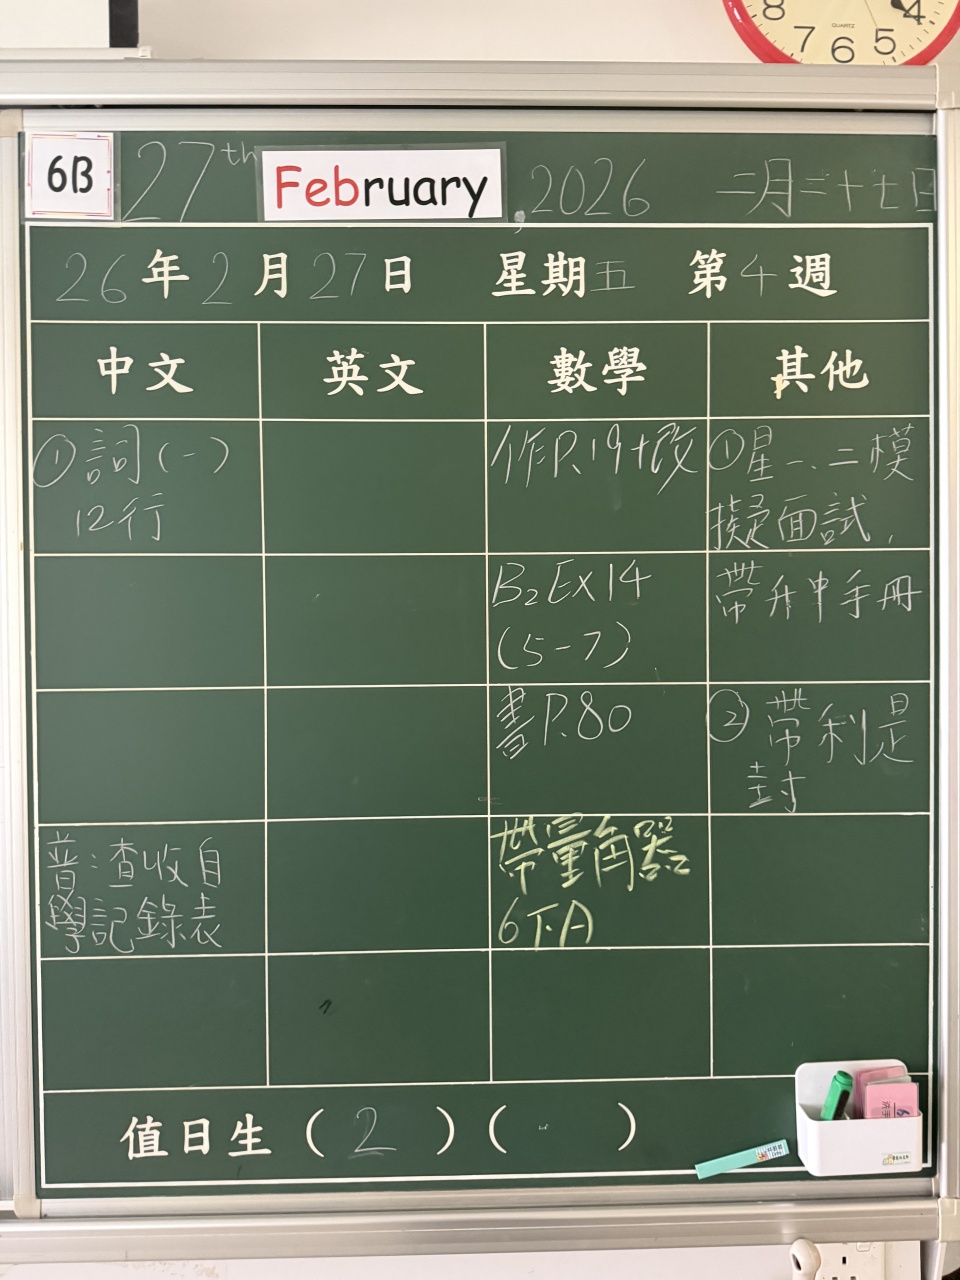 8 7 6 5 4
QUARTZ
6B 27th February, 2026 二月二十七日
26年2月27日 星期五 第4週
中文 英文 數學 其他
①詞(一)
12行
作P.19+改
①星一、二模
擬面試,
B2Ex14
(5-7)
帶升中手冊
書P.80
②帶利是
封
普:查收自
學記錄表
帶量角器
6下A
值日生(2)( )